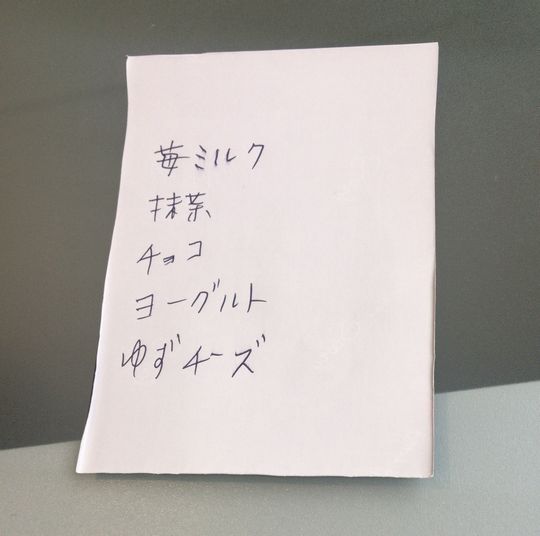 苺ミルク
抹茶
チョコ
ヨーグルト
ゆずチーズ